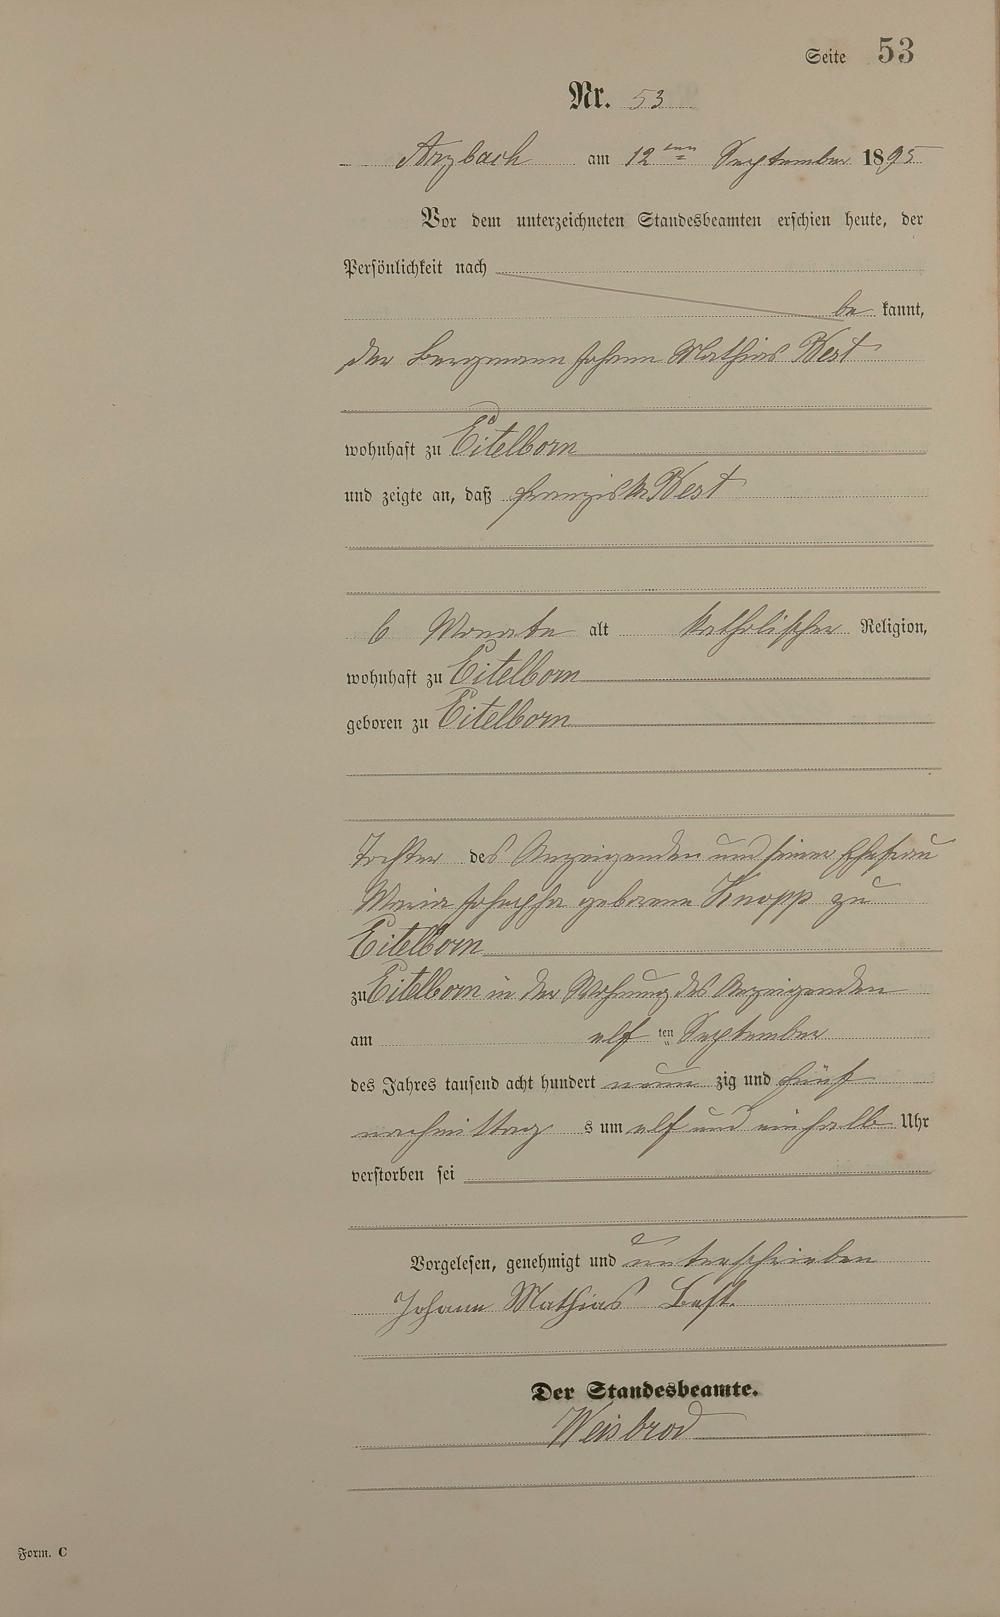 Seite 53
Nr. 53
Arzbach am 12ten September 1895
Vor dem unterzeichneten Standesbeamten erschien heute, der
Persönlichkeit nach
be kannt,
der Bergmann Johann Mathias Best
wohnhaft zu Eitelborn
und zeigte an, daß Franziska Best
6 Monate alt katholischer Religion,
wohnhaft zu Eitelborn
geboren zu Eitelborn
Tochter des Anzeigenden und seiner Ehefrau
Maria Josepha geborene Knopp zu
Eitelborn
zu Eitelborn in der Wohnung des Anzeigenden
am elf ten September
des Jahres tausend acht hundert neun zig und fünf
nachmittag s um elf und einhalb Uhr
verstorben sei
Vorgelesen, genehmigt und unterschrieben
Johann Mathias Best.
Der Standesbeamte.
Weisbrod
Form. C